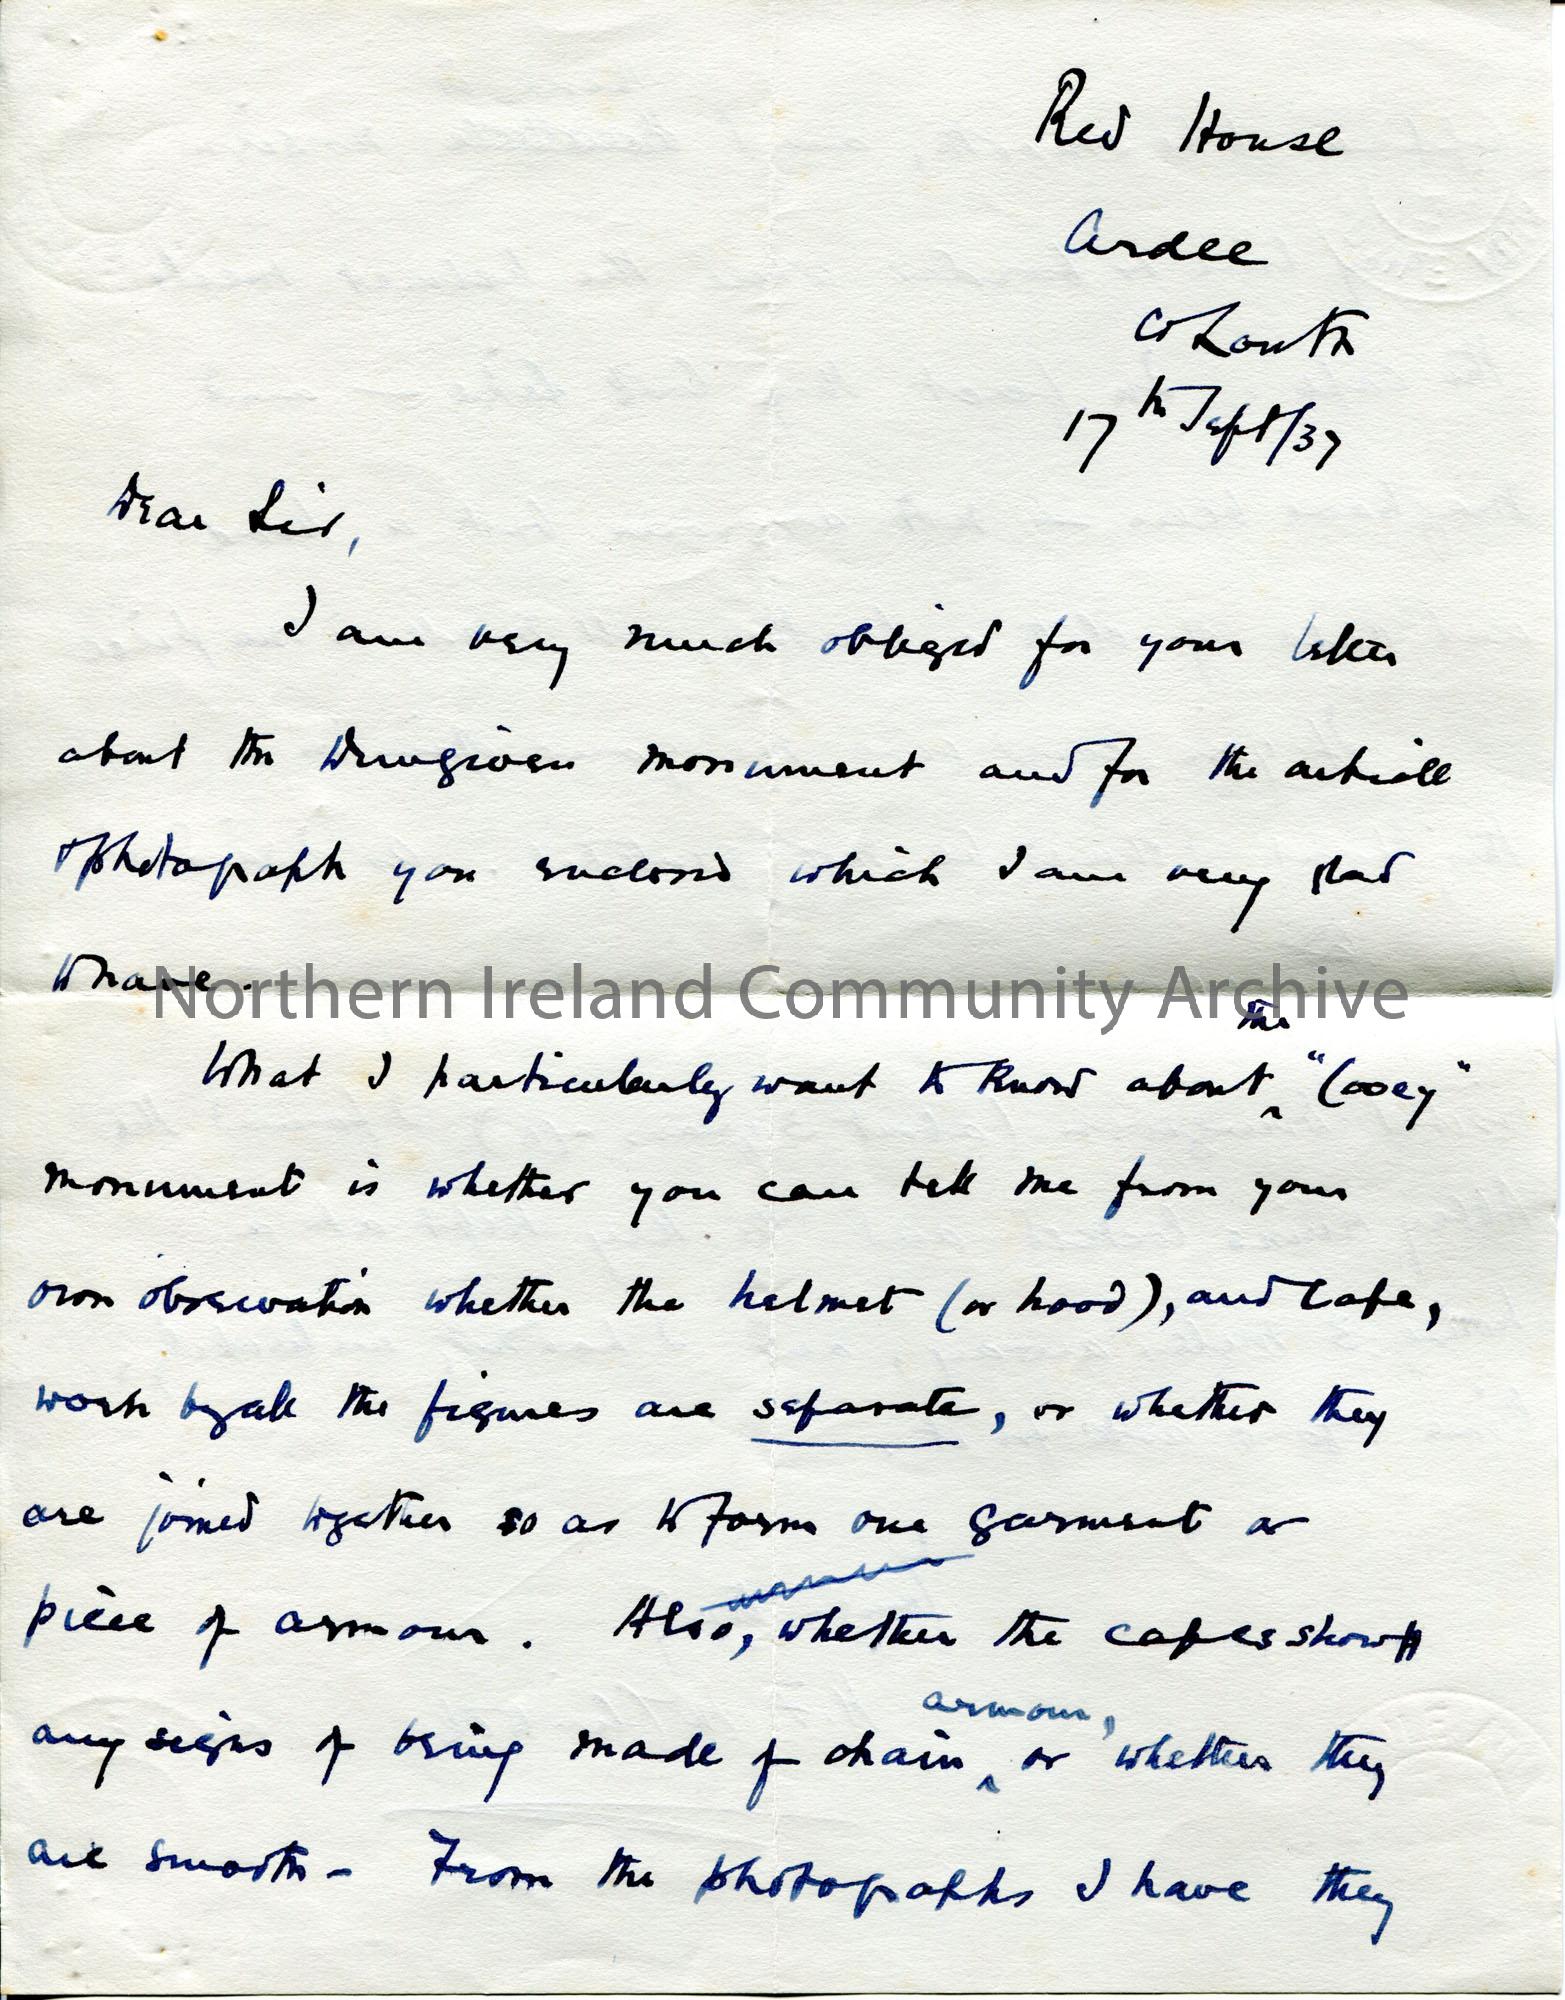 Red House
Ardee
Co Louth
17th Sept/37
Dear Sir,
I am very much obliged for your letter
about the Dungiven monument and for the article
& photograph you enclosed which I am very glad
to have.
Northern Ireland Community Archive
What I particularly want to know about the "Cooey"
monument is whether you can tell me from your
own observation whether the helmet (or hood), and cape,
worn by all the figures are separate, or whether they
are joined together so as to form one garment or
piece of armour. Also, whether the capes show
any signs of being made of chain armour, or whether they
are smooth - From the photographs I have they